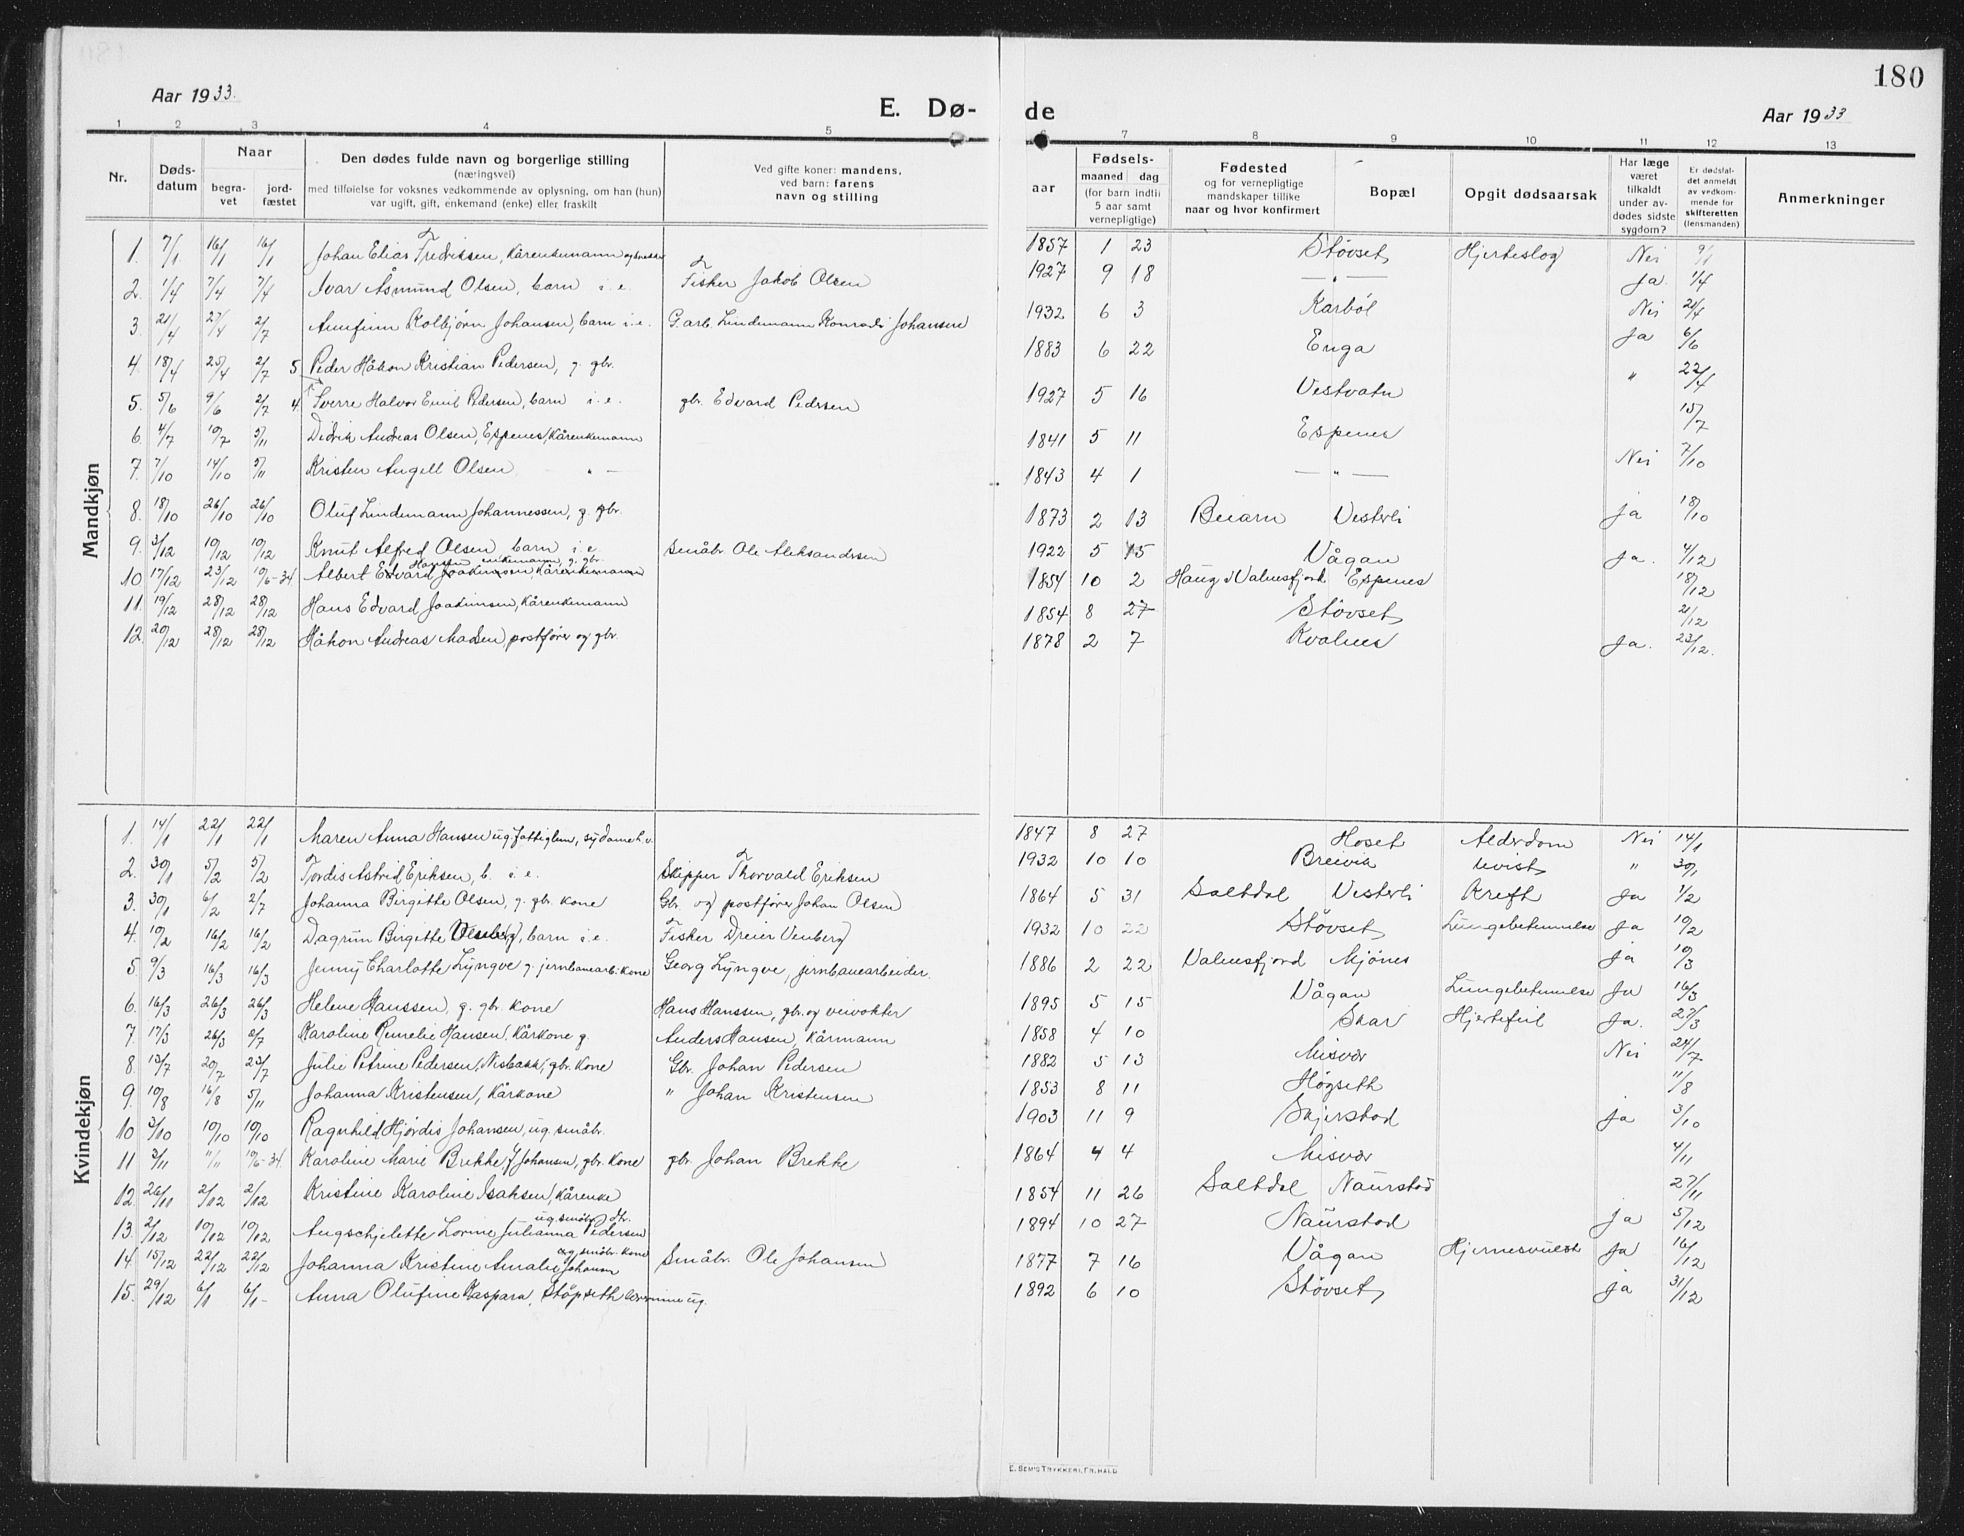 180
Aar 1933.
E. Dø-
de
Aar 1933
1 2 3 4 5 6 7 8 9 10 11 12 13
Nr.
Døds-
datum
Naar
begra-
vet
jord-
fæstet
Den dødes fulde navn og borgerlige stilling
(næringsvei)
med tilføielse for voksnes vedkommende av oplysning, om han (hun)
var ugift, gift, enkemand (enke) eller fraskilt
Ved gifte koner: mandens,
ved barn: farens
navn og stilling
aar
Fødsels-
maaned dag
(for barn indtil
5 aar samt
vernepligtige)
Fødested
og for vernepligtige
mandskaper tillike
naar og hvor konfirmert
Bopæl
Opgit dødsaarsak
Har læge
været
tilkaldt
under av-
dødes sidste
sygdom?
Er dødsfal-
det anmeldt
av vedkom-
mende for
skifteretten
(lensmanden)
Anmerkninger
Mandkjøn
1. 7/1 16/1 16/1 Johan Elias Fredriksen, Kårenkemann og snekker 1857 1 23 Støvset Hjerteslag Nei 9/1
2. 1/4 7/4 7/4 Ivar Åsmund Olsen, barn i.e. Fisker Jakob Olsen 1927 9 18 — " — Ja. 1/4
3. 21/4 27/4 2/7 Arnfinn Kolbjørn Johansen, barn i.e. G.arb. Lindemann Konradi Johansen 1932 6 3 Karbøl Nei 21/4
4. 18/4 25/4 2/7 5 Peder Håkon Kristian Pedersen, g. gbr. 1883 6 22 Enga Ja 6/6
5. 5/6 9/6 2/7 4. Sverre Halvor Emil Pedersen, barn i.e. gbr. Edvard Pedersen 1927 5 16 Vestvatn " 22/4
6. 4/7 10/7 5/11 Didrik Andreas Olsen, Espenes, Kårenkemann 1841 5 11 Espenes 15/7
7. 7/10 14/10 5/11 Kristen Angell Olsen — " — 1843 4 1 — " — Nei 7/10
8. 18/10 26/10 26/10 Oluf Lindemann Johannessen, g. gbr. 1873 2 13 Beiarn Vesterli Ja 18/10
9. 3/12 10/12 10/12 Knut Alfred Olsen, barn i.e. Småbr. Ole Aleksandersen 1922 5 15 Vågan Ja. 4/12
Hansen enkemann, g. gbr.
10 17/12 23/12 10/6-34 Albert Edvard Joakimsen Kårenkemann 1854 10 2 Haug i Valnesfjord Espenes 18/12
11. 19/12 28/12 28/12 Hans Edvard Joakimsen, Kårenkemann 1854 8 27 Støvset 21/12
12. 20/12 28/12 28/12 Håkon Andreas Madsen, postfører og gbr. 1878 2 7 Kvalnes Ja. 23/12.
Kvindekjøn
1. 14/1 22/1 22/1 Maren Anna Hansen ug. fattiglem, 1847 8 27 Hoset Alderdom Nei 14/1
2. 30/1 5/2 5/2 Tordis Astrid Eriksen, b. i.e. Skipper Thorvald Eriksen 1932 10 10 Breivik uvist " 30/1
3. 30/1 6/2 2/7 Johanna Birgitte Olsen, g. gbr. kone Gbr. og postfører Johan Olsen 1864 5 31 Saltdal Vesterli Kreft Ja 1/2
4. 10/2 16/2 16/2 Dagrun Birgitte Venberg, barn i.e. Fisker Dreier Venberg 1932 10 22 Støvset Lungebetennelse Ja 10/2
5. 9/3 16/3 16/3 Jenny Charlotte Lyngve g. jernbanearb. kone Georg Lyngve, jernbanearbeider. 1886 2 22 Valnesfjord Mjønes Ja 10/3
6. 16/3 26/3 26/3 Helene Hanssen, g. gbr. kone Hans Hanssen, gbr. og veivokter 1895 5 15 Vågan Lungebetennelse Ja 16/3
7. 17/3 26/3 2/7 Karoline Remelie Hansen, Kårkone g. Anders Hansen, Kårmann 1858 4 10 Skar Hjertefeil Ja. 27/3
8. 13/7 20/7 23/7 Julie Petrine Pedersen, Nisbakk, gbr. kone Gbr. Johan Pedersen 1882 5 13 Misvær Nei 24/7
9. 10/8 16/8 5/11 Johanna Kristensen, Kårkone " Johan Kristensen 1853 8 11 Høgseth 11/8
10 3/10 10/10 10/10 Ragnhild Hjørdis Johansen, ug. småbr. 1903 11 9 Skjerstad Ja 3/10
11 3/11 11/11 10/6-34. Karoline Marie Brekke, f. Johansen, gbr. kone gbr. Johan Brekke 1864 4 4 Misvær 4/11
12. 26/11 2/12 2/12 Kristine Karoline Isaksen, Kårenke 1854 11 26 Saltdal Naurstad 27/11
ug. småbr. dtr.
13. 2/12 10/12 10/12 Augschjelette Lorine Julianna Pedersen 1894 10 27 Naurstad Ja 5/12
og småbr. kone
14. 15/12 22/12 22/12 Johanna Kristine Amalie Johansen Småbr. Ole Johansen 1877 7 16 Vågan Hjernesvulst Ja 16/12
15. 29/12 6/1 6/1 - Anna Olufine Kaspara, Støpseth lærerinne ug. 1892 6 10 Støvset Ja 31/12
E. SEM'S TRYKKERI, FR.HALD